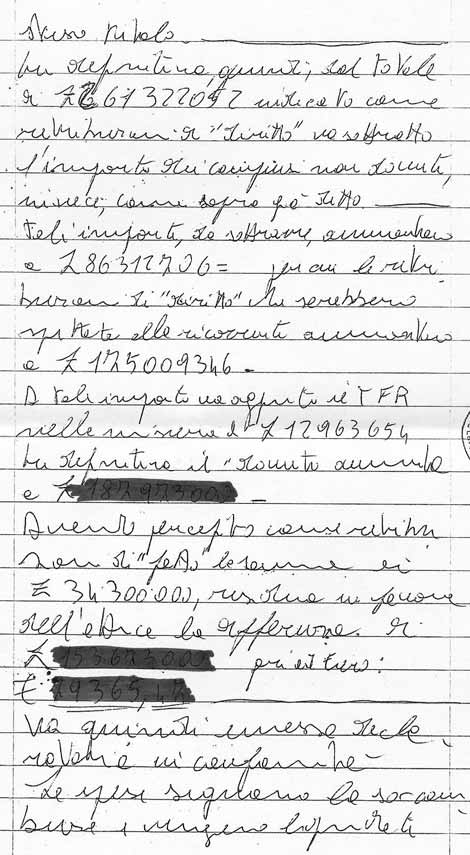 stesso titolo.
In definitiva, quindi, dal totale
di £ 267322052 indicato come
retribuzioni di "diritto" va sottratto
l'importo dei compensi non dovuti,
invece, come sopra già detto.
Tali importi, da sottrarre, ammontano
a £ 86312706= per cui le retri
buzioni di "diritto" che sarebbero
spettate alla ricorrente ammontano
a £ 175009346.
A tale importo va aggiunto il TFR
nella misura di £ 12963654
In definitiva il "dovuto" ammonta
a £ 187973000
Avendo percepito come retribu
zioni di "fatto" le somme di
£ 34300000, residua in favore
dell'attrice la differenza di
£ 153673000 pari ad Euro:
€ 79365,42
Va quindi emessa decla
ratoria in conformità
Le spese seguono la soccom
benza e vengono liquidate